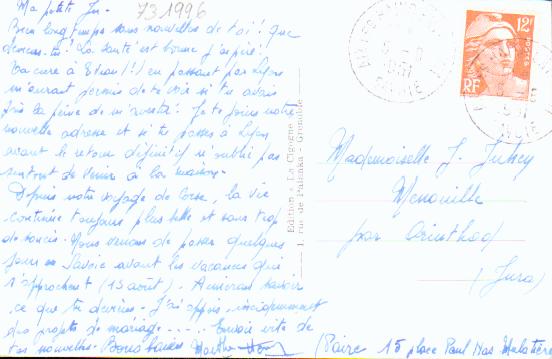 Ma petite Ju-
73 1996
Bien longtemps sans nouvelles de toi! que
deviens-tu? La santé est bonne j'espère!
Ta cure à (!) en passant par Lyon
m'aurait permis de te voir si tu avais
pris la peine de m'avertir! Je te joins notre
nouvelle adresse et si tu passes à Lyon
avant le retour définitif n'oublie pas
surtout de venir à la maison.
Depuis notre voyage de Corse, la vie
continue toujours plus belle et sans trop
de soucis. Nous venons de passer quelques
jours en Savoie avant les vacances qui
s'approchent (15 août). Aimerais savoir
ce que tu deviens. J'ai appris
des projets de mariage..... Envoie vite de
tes nouvelles. Bons baisers
Edition « La Cigogne »
1, rue de Palanka - Grenoble
12F
POSTES
RF
1951
SAVOIE
Mademoiselle J. Juhey
Menouille
par Orinthod
(Jura)
15 place Paul